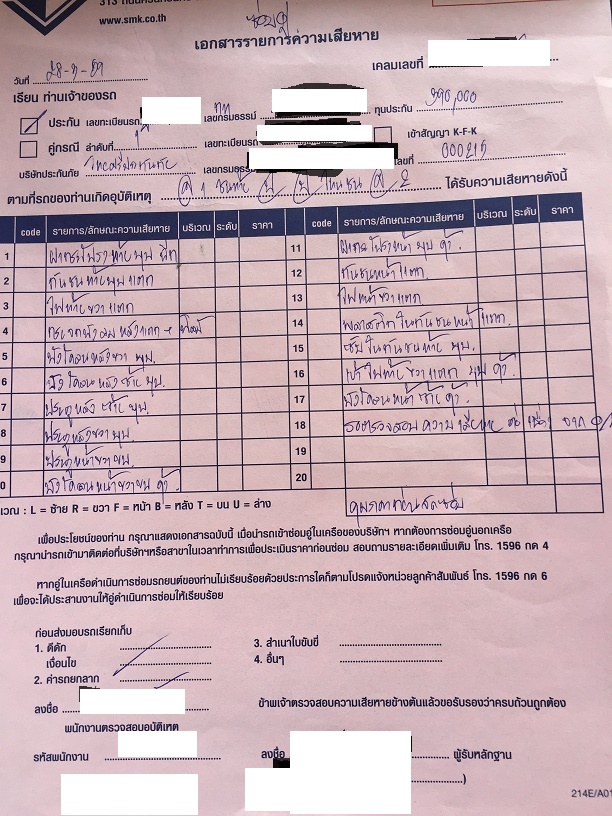 313 ถนน
www.smk.co.th
ซ่อมคู่
เอกสารรายการความเสียหาย
เคลมเลขที่
วันที่
เรียน ท่านเจ้าของรถ
ประกัน เลขทะเบียนรถ กท เลขกรมธรรม์ ทุนประกัน 390,000
คู่กรณี ลำดับที่ เลขทะเบียนรถ เข้าสัญญา K-F-K
บริษัทประกันภัย เลขกรมธรรม์ เลขที่
ตามที่รถของท่านเกิดอุบัติเหตุ ได้รับความเสียหายดังนี้
code รายการ/ลักษณะความเสียหาย บริเวณ ระดับ ราคา code รายการ/ลักษณะความเสียหาย บริเวณ ระดับ ราคา
1 ฝากระโปรงท้ายบุบ 11 ฝากระโปรงหน้า บุบ ด้า.
2 กันชนท้ายบุบ แตก 12 กันชนหน้าแตก
3 ไฟท้ายขวาแตก 13 ไฟหน้าขวาแตก
4 กระจกบังลมหลังแตก 14 พลาสติกในกันชนหน้าแตก.
5 บังโคลนหลังขวา บุบ. 15 ในกันชนท้าย บุบ.
6 บังโคลนหลังซ้ายบุบ. 16 เบ้าไฟท้ายขวาแตก บุบ ด้า.
7 ประตูหลังซ้ายบุบ. 17 บังโคลนหน้าซ้าย ด้า.
8 ประตูหลังขวาบุบ 18 รอตรวจสอบความเสียหายต่อเนื่อง จาก
9 ประตูหน้าขวาบุบ. 19
0 บังโคลนหน้าขวาบุบ ด้า. 20
เวณ : L = ซ้าย R = ขวา F = หน้า B = หลัง T = บน U = ล่าง คุมราคาก่อนจัดซ่อม
เพื่อประโยชน์ของท่าน กรุณาแสดงเอกสารฉบับนี้ เมื่อนำรถเข้าซ่อมอู่ในเครือของบริษัทฯ หากต้องการซ่อมอู่นอกเครือ
กรุณานำรถเข้ามาติดต่อที่บริษัทฯหรือสาขาในเวลาทำการเพื่อประเมินราคาก่อนซ่อม สอบถามรายละเอียดเพิ่มเติม โทร. 1596 กด 4
หากอู่ในเครือดำเนินการซ่อมรถยนต์ของท่านไม่เรียบร้อยด้วยประการใดก็ตามโปรดแจ้งหน่วยลูกค้าสัมพันธ์ โทร. 1596 กด 6
เพื่อจะได้ประสานงานให้อู่ดำเนินการซ่อมให้เรียบร้อย
ก่อนส่งมอบรถเรียกเก็บ
1. ดีดัก 3. สำเนาใบขับขี่
เงื่อนไข 4. อื่นๆ
2. ค่ารถยกลาก
ลงชื่อ ข้าพเจ้าตรวจสอบความเสียหายข้างต้นแล้วขอรับรองว่าครบถ้วนถูกต้อง
พนักงานตรวจสอบอุบัติเหตุ
รหัสพนักงาน ลงชื่อ ผู้รับหลักฐาน
)
214E/A01